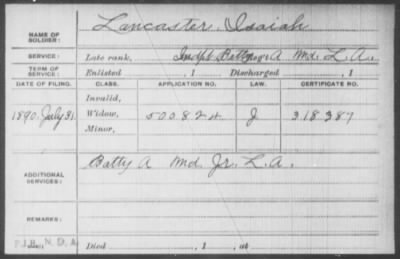 NAME OF SOLDIER: Lancaster, Isaiah
SERVICE: Late rank, Indpt Batty A Md. L. A.
TERM OF SERVICE: Enlisted , 1 Discharged , 1
DATE OF FILING. CLASS. APPLICATION NO. LAW. CERTIFICATE NO.
Invalid,
1890. July 31. Widow, 500824. J 318387
Minor,
ADDITIONAL SERVICES: Batty A Md. Jr. L. A.
REMARKS:
N. D. A.
Died , 1 , at